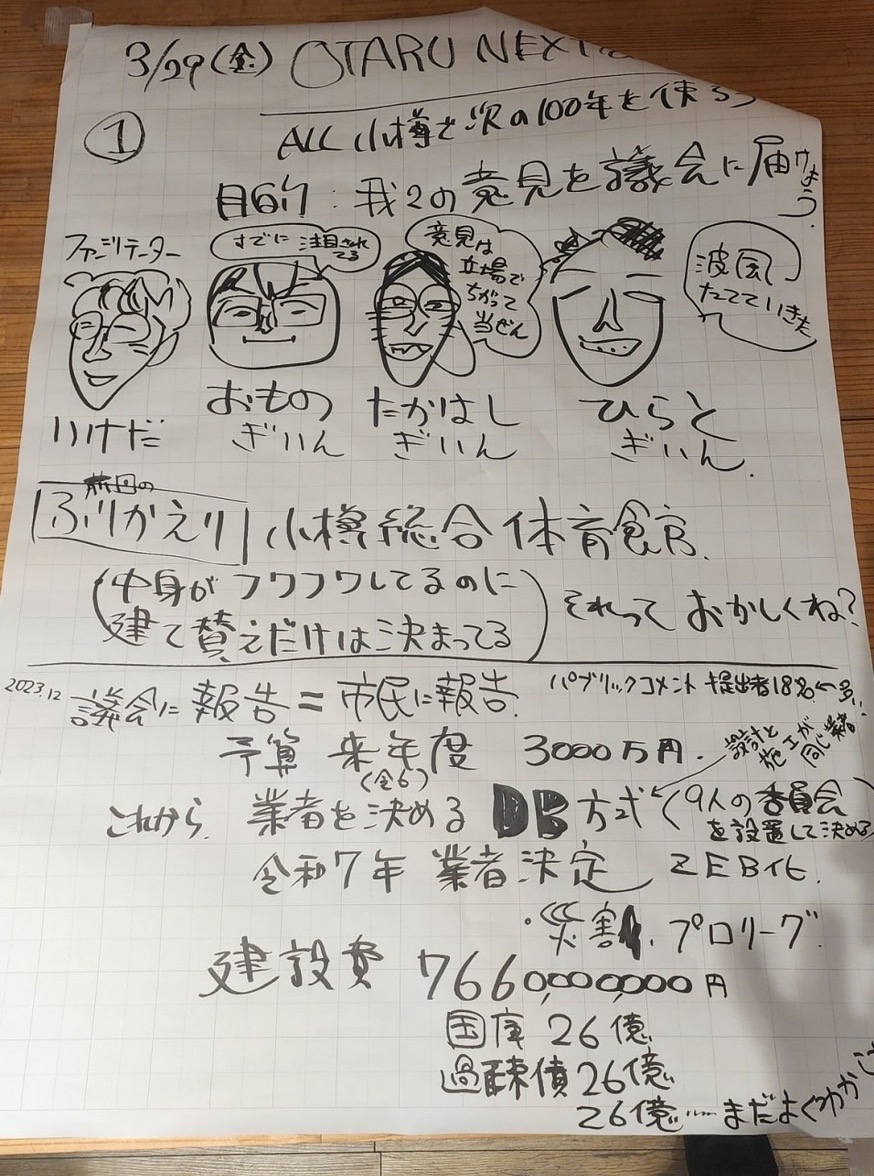 3/29(金) OTARU NEXT
①
ALL 小樽で次の100年を使ろう
目的:我々の意見を議会に届けよう.
ファシリテーター
いけだ
すでに注目されてる
おもの
ぎいん
意見は
立場で
ちがって
当ぜん
たかはし
ぎいん
波風
たてていきた
ひらと
ぎいん.
前回の
ふりかえり 小樽総合体育館.
(中身がフワフワしてるのに
建て替えだけは決まってる) それって おかしくね?
2023.12 議会に報告=市民に報告. パブリックコメント 提出者18名←多!!
予算 来年度 3000万円.
(令6)
設計と
施工が
同じ業者
これから 業者を決める DB方式 (9人の委員会
を設置して決める)
令和7年 業者決定 ZEB化.
・災害. プロリーグ.
建設費 7660,000,000円
国庫 26億
過疎債 26億
26億……まだよくわか